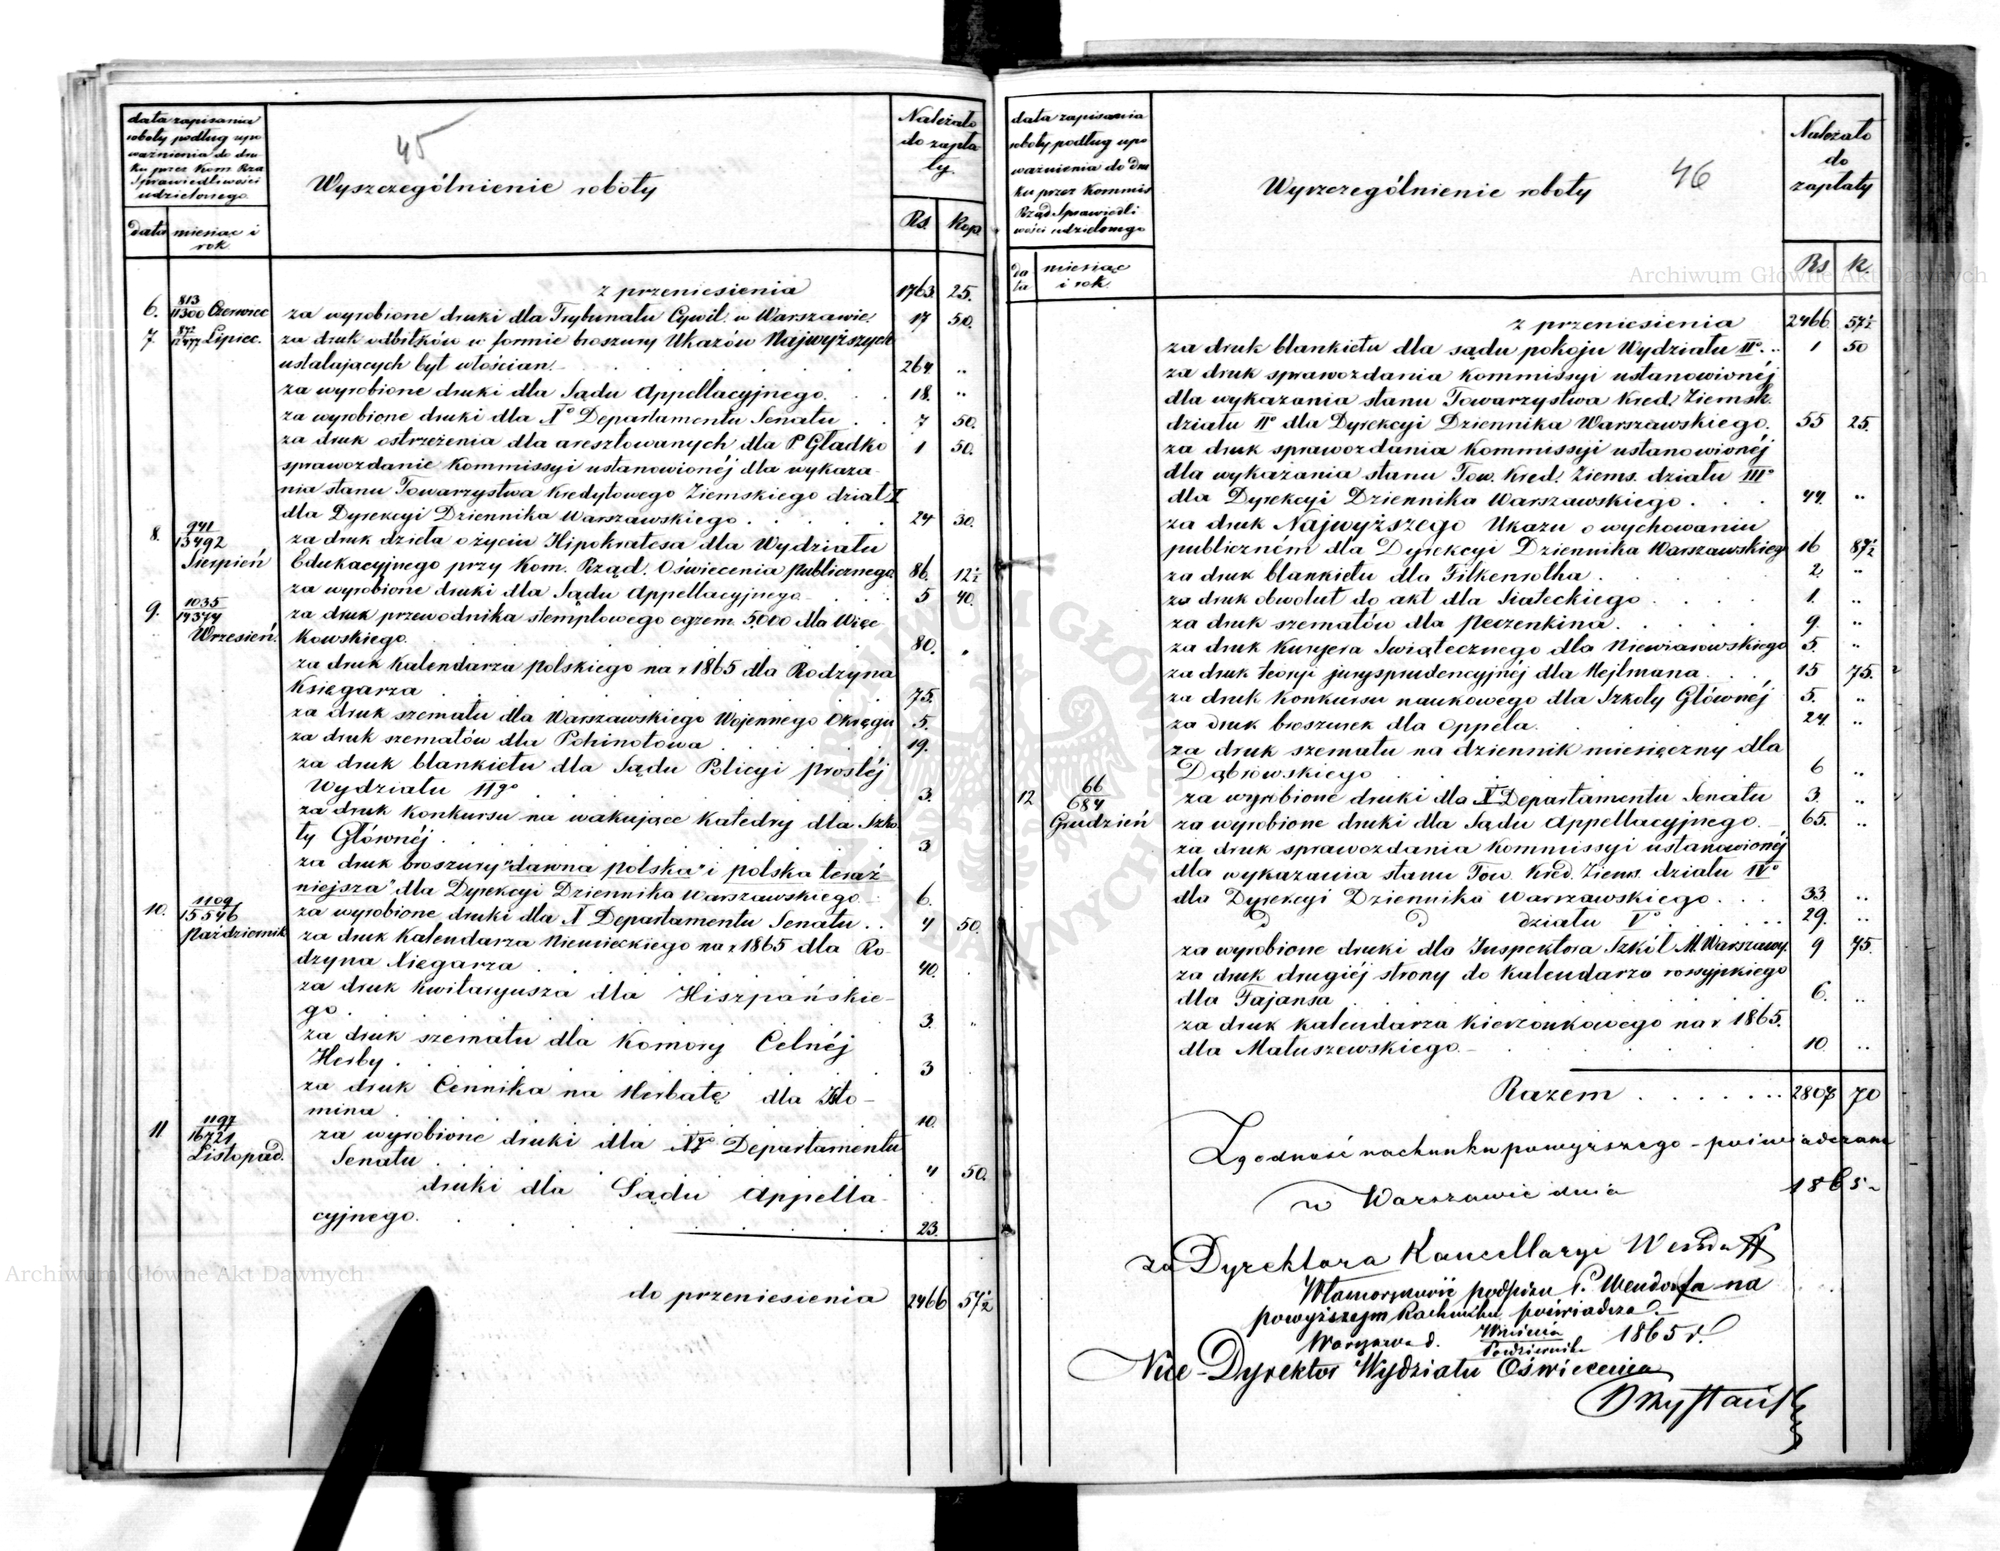 45
data zapisania
roboty podług upo
ważnienia do dru
ku przez Kom. Rzą
Sprawiedliwości
udzielonego
Wyszczególnienie roboty
Należało
do zapła
ty
data
miesiąc i
rok
Rs.
Kop.
z przeniesienia 1763. 25.
6. 813
11300 Czerwiec za wyrobione druki dla Trybunału Cywil. w Warszawie. 17 50.
7. 872
12477 Lipiec. za druk odbitków w formie broszury Ukazów Najwyższych
ustalających byt włościan. 264. "
za wyrobione druki dla Sądu Appellacyjnego. 18. "
za wyrobione druki dla X° Departamentu Senatu . . 7 50.
za druk ostrzeżenia dla aresztowanych dla P Gładko 1 50.
sprawozdanie Kommissyi ustanowionéj dla wykaza-
nia stanu Towarzystwa Kredytowego Ziemskiego dział II
dla Dyrekcyi Dziennika Warszawskiego . . . . 24 30.
8. 941
13492 za druk dzieła o życiu Hipokratesa dla Wydziału
Sierpień Edukacyjnego przy Kom. Rząd. Oświecenia Publicznego 86. 12½
za wyrobione druki dla Sądu Appellacyjnego 5 40.
9. 1035
14374 za druk przewodnika stemplowego egzem. 5,000 dla Więc
Wrzesień. kowskiego. 80. "
za druk Kalendarza polskiego na r 1865 dla Rodzyna
Księgarza . . . 75.
za druk szematu dla Warszawskiego Wojennego Okręgu 5.
za druk szematów dla Pohinotowa . . . 19.
za druk blankietu dla Sądu Policyi prostéj
Wydziału IIgo . . . 3.
za druk konkursu na wakujące Katedry dla Szko
ły Głównéj . . . 3
za druk broszury "dawna polska" i polska teraź-
niejsza" dla Dyrekcyi Dziennika Warszawskiego 6.
10. 1109
15546 za wyrobione druki dla X Departamentu Senatu . . 4 50.
Październik za druk Kalendarza Niemieckiego na r 1865 dla Ro-
dzyna Xięgarza . . . 40.
za druk kwitaryusza dla Hiszpańskie-
go . . . 3. "
za druk szematu dla Komory Celnéj
Herby . . . 3
za druk Cennika na Herbatę dla Isto-
mina . . . 10.
11 1197
16721 za wyrobione druki dla Xgo Departamentu
Listopad. Senatu . . . 4 50.
druki dla Sądu Appella-
cyjnego. . . . 23.
do przeniesienia 2466 57½
46
data zapisania
roboty podług upo
ważnienia do dru
ku przez Kommis
Rząd. Sprawiedli
wości udzielonego
Wyszczególnienie roboty
Należało
do
zapłaty
da
ta
miesiąc
i rok.
Rs
K.
z przeniesienia 2466. 57½
za druk blankietu dla sądu pokoju Wydziału II°. .. 1 50
za druk sprawozdania Kommissyi ustanowionéj
dla wykazania stanu Towarzystwa Kred. Ziemsk
działu II° dla Dyrekcyi Dziennika Warszawskiego. 55 25.
za druk sprawozdania Kommissyi ustanowionéj
dla wykazania stanu Tow. Kred. Ziems. działu III°
dla Dyrekcyi Dziennika Warszawskiego . . . 44. "
za druk Najwyższego Ukazu o wychowaniu
publiczném dla Dyrekcyi Dziennika Warszawskieg 16 87½
za druk blankietu dla Filkensolha . . . 2. "
za druk obwolut do akt dla Siateckiego . . . 1. "
za druk szematów dla Peczenkina . . . 9. "
za druk Kuryera Świątecznego dla Niewiarowskiego 5. "
za druk teoryi jurysprudencyjnéj dla Hejlmana . . 15 75.
za druk Konkursu naukowego dla Szkoły Głównéj 5. "
za druk broszurek dla Oppela. . . . 24. "
za druk szematu na dziennik miesięczny dla
Dąbrowskiego . . . 6 "
12 66
684 za wyrobione druki dla X Departamentu Senatu 3. "
Grudzień za wyrobione druki dla Sądu Appellacyjnego. 65. "
za druk sprawozdania Kommissyi ustanowionéj
dla wykazania stanu Tow. Kred. Ziems. działu IV°
dla Dyrekcyi Dziennika Warszawskiego . . . 33. "
D D działu V° . . . 29. "
za wyrobione druki dla Inspektora Szkół M. Warszawy. 9 75.
za druk drugiéj strony do kalendarza rossyjskiego
dla Fajansa . . . 6. "
za druk kalendarza kieszonkowego na r 1865.
dla Matuszewskiego. . . . 10. "
Razem . . . . . . 2807 70
Zgodność rachunku powyższego – poświadczam
w Warszawie dnia 1865 r.
za Dyrektora Kancellaryi Wendorff
Własnoręczność podpisu P. Wendorfa na
powyższym Rachunku poświadcza.
Warszawa d. Września
Października 1865 r.
Vice-Dyrektor Wydziału Oświecenia
Archiwum Główne Akt Dawnych
Archiwum Główne Akt Dawnych